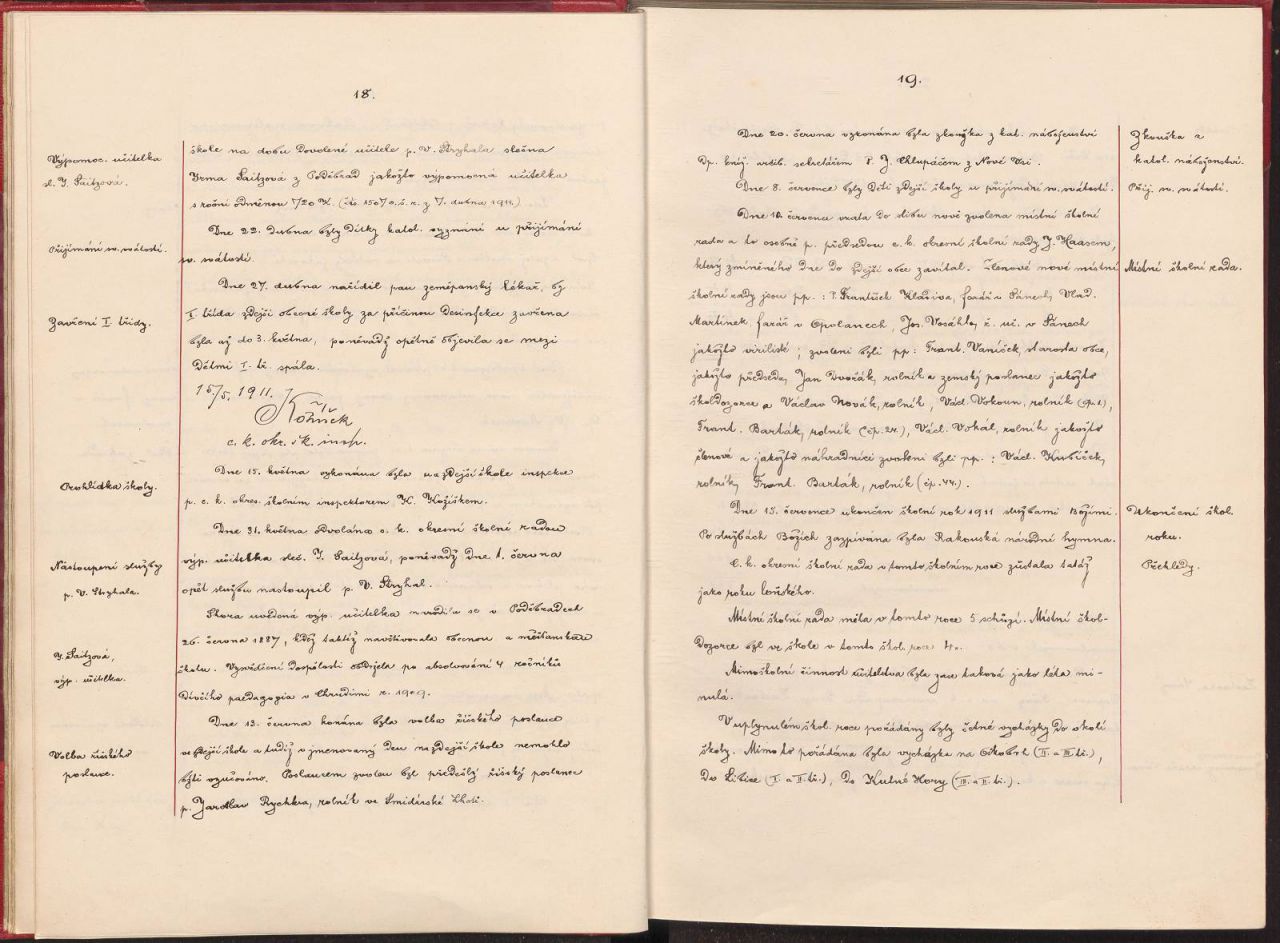 18.
Výpomoc. učitelka
sl. I. Saitzová.
škole na dobu dovolené učitele p. V. Stryhala slečna
Irma Saitzová z Poděbrad jakožto výpomocná učitelka
s roční odměnou 720 K. (čís. z 7. dubna 1911.)
Přijímání sv. svátostí.
Dne 22. dubna byly dítky katol. vyznání u přijímání
sv. svátostí.
Zavření I. třídy.
Dne 27. dubna nařídil pan zeměpanský lékař, by
I. třída zdejší obecné školy za příčinou desinfekce zavřena
byla až do 3. května, poněvadž opětně objevila se mezi
dětmi I. tř. spála.
15/5. 1911.
Kožíšek
c. k. okr. šk. insp.
Prohlídka školy.
Dne 15. května vykonána byla na zdejší škole inspekce
p. c. k. okres. školním inspektorem, K. Kožíškem.
Nastoupení služby
p. V. Stryhala.
Dne 31. května odvolána c. k. okresní školní radou
výp. učitelka sleč. I. Saitzová, poněvadž dne 1. června
opět službu nastoupil p. V. Stryhal.
I. Saitzová,
výp. učitelka.
Shora uvedená výp. učitelka narodila se v Poděbradech
26. června 1887, kdež taktéž navštěvovala obecnou a měšťanskou
školu. Vysvědčení dospělosti obdržela po absolvování 4 ročníků
Dívčího paedagogia v Chrudimi r. 1909.
Volba říšského
poslance.
Dne 13. června konána byla volba říšského poslance
ve zdejší škole a tudíž v jmenovaný den na zdejší škole nemohlo
býti vyučováno. Poslancem zvolen byl předešlý říšský poslanec
p. Jaroslav Rychtera, rolník ve Smidarské Lhotě.
19.
Dne 20. června vykonána byla zkouška z kat. náboženství
Dp. kníž. arcib. sekretářem P. J. Chlupáčem z Nové Vsi.
Zkouška z
katol. náboženství.
Dne 8. července byly děti zdejší školy u přijímání sv. svátostí.
Přij. sv. svátostí.
Dne 10. července vzata do slibu nově zvolena místní školní
rada a to osobně p. předsedou c. k. okresní školní rady J. Haasem,
který zmíněného dne do zdejší obce zavítal. Členové nové místní
Místní školní rada.
školní rady jsou pp.: P. František Klášiva, farář v Sánech, Vlad.
Martínek farář v Opolanech, Jos. Vosáhlo, ř. uč. v Sánech
jakožto virilisté; zvoleni byli pp: Frant. Vaníček, starosta obce,
jakožto předseda, Jan Dvořák, rolník a zemský poslanec jakožto
školdozorce a Václav Novák, rolník, Václ. Vokoun, rolník (čp. 1.),
Frant. Barták, rolník (čp. 27.), Václ. Vohal, rolník jakožto
členové a jakožto náhradníci zvoleni byli pp.: Václ. Kubíček,
rolník, Frant. Barták, rolník (čp. 44.).
Dne 15. července ukončen školní rok 1911 službami Božími.
Ukončení škol.
roku.
Po službách Božích zazpívána byla Rakouská národní hymna.
Přehledy.
C. k. okresní školní rada v tomto školním roce zůstala tatáž
jako roku loňského.
Místní školní rada měla v tomto roce 5 schůzí. Místní škol-
dozorce byl ve škole v tomto škol. roce 4.
Mimoškolní činnost učitelstva byla zase taková jako léta mi-
nulá.
V uplynulém škol. roce pořádány byly četné vycházky do okolí
školy. Mimo to pořádána byla vycházka na Oškobrh (II. a III. tř.),
do Libice (I. a II. tř.), do Kutné Hory (III. a II. tř.).